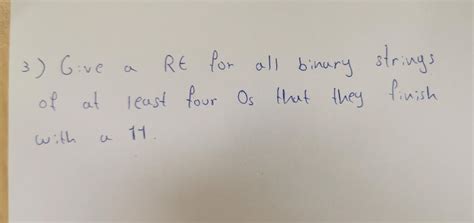 3) Give a RE for all binary strings
of at least four 0s that they finish
with a 11.